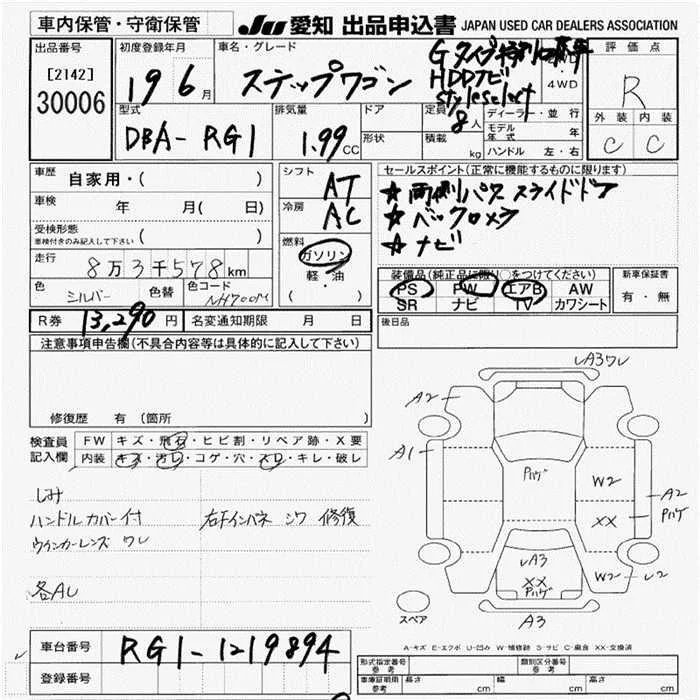 車内保管・守衛保管
JU 愛知 出品申込書 JAPAN USED CAR DEALERS ASSOCIATION
出品番号
[2142]
30006
初度登録年月
19 6月
車名・グレード
ステップワゴン
HDDナビ
style select
4WD
評価点
R
外装 内装
C C
型式
DBA-RG1
排気量
1.99CC
ドア
形状
定員
8人
積載
kg
ディーラー・並行
モデル年式
年
ハンドル 左・右
車歴
自家用・( )
車検
年 月( 日)
受検形態
車検付きのみ記入して下さい ( )
走行
8万3千578km
色
シルバー
色替
色コード
NH700M
シフト
AT
冷房
AC
燃料
ガソリン
軽・油
( )
セールスポイント(正常に機能するものに限ります)
★両側パワスライドドア
★バックカメラ
★ナビ
装備品(純正品に限り○をつけてください)
PS PW エアB AW
SR ナビ TV カワシート
新車保証書
有・無
R券 13,290円
名変通知期限 月 日
後日品
注意事項申告欄(不具合内容等は具体的に記入して下さい)
修復歴 有(箇所 )
検査員
記入欄
FW キズ・飛石・ヒビ割・リペア跡・X要
内装 キズ・汚レ・コゲ・穴・スレ・キレ・破レ
しみ
ハンドルカバー付
右Fインパネ シワ 修復
ウインカーレンズ ワレ
各AU
レA3ワレ
A2
A1
Pハゲ
W2
XX
A2
Pハゲ
レA3
XX
Pハゲ
W2
レ2
A3
スペア
A-キズ E-エクボ U-凹み W-補修跡 S-サビ C-腐食 XX-交換済
車台番号
RG1-1219894
登録番号
形式指定番号
参考
類別区分番号
参考
車庫証明用
参考
長さ cm
幅 cm
高さ cm